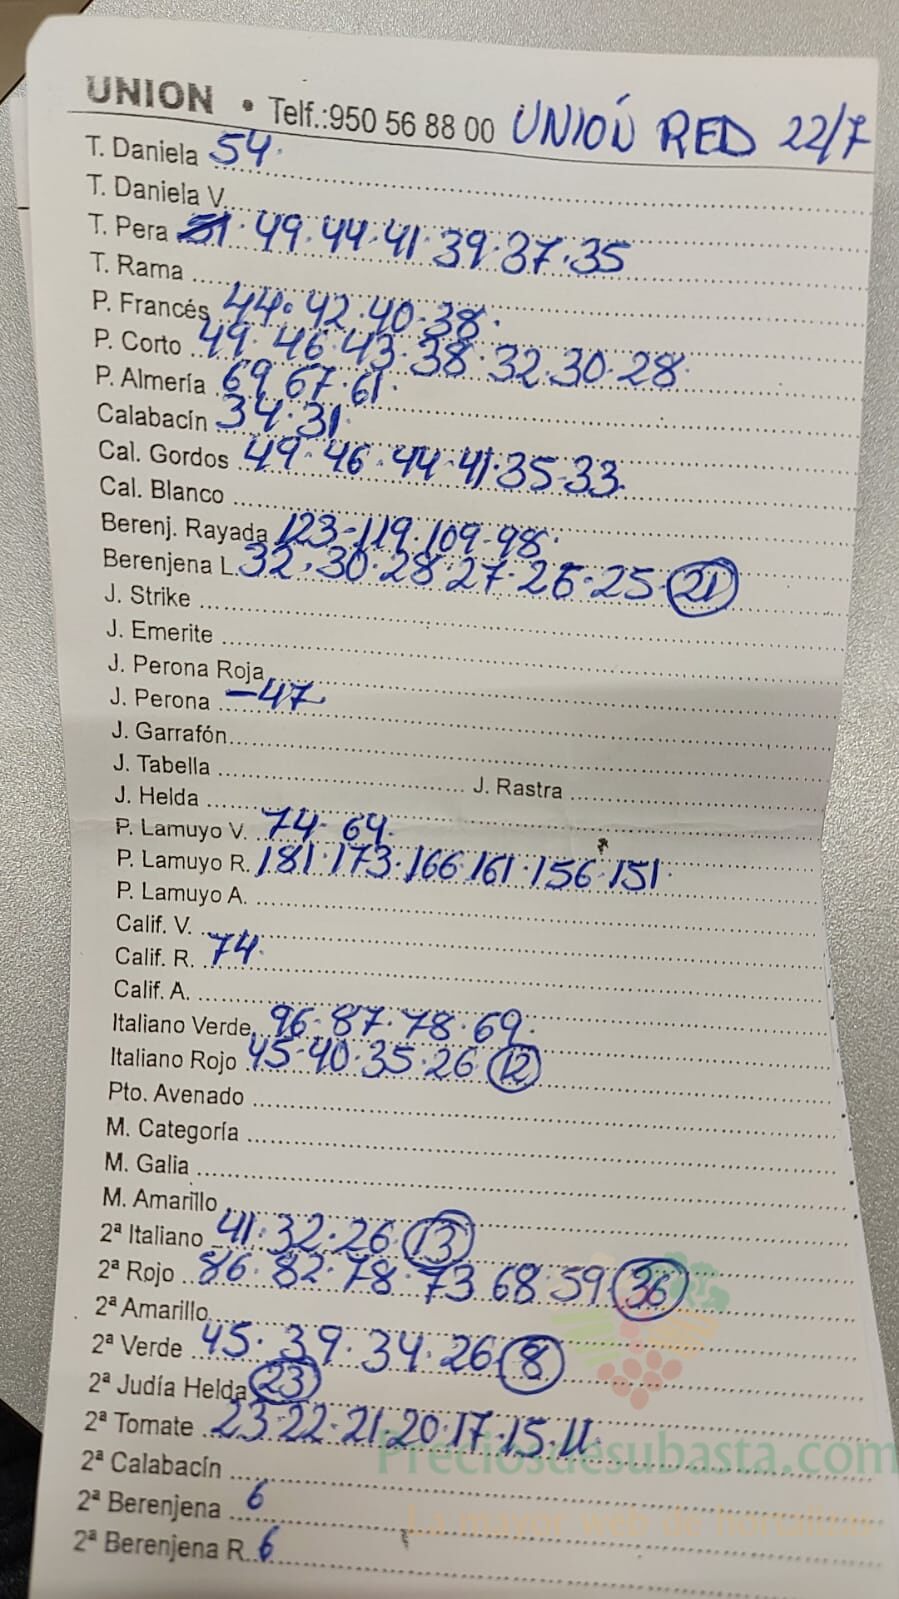 UNION • Telf.:950 56 88 00 UNIÓN RED 22/7
T. Daniela 54.
T. Daniela V.
T. Pera 51.49.44.41.39.37.35
T. Rama
P. Francés 44.42.40.38.
P. Corto 49.46.43.38.32.30.28.
P. Almería 69.67.61.
Calabacín 34.31.
Cal. Gordos 49.46.44.41.35-33.
Cal. Blanco
Berenj. Rayada 123-119.109-98.
Berenjena L. 32.30.28.27.26.25.21
J. Strike
J. Emerite
J. Perona Roja
J. Perona -47
J. Garrafón
J. Tabella J. Rastra
J. Helda
P. Lamuyo V. 74.64.
P. Lamuyo R. 181.173.166.161.156.151.
P. Lamuyo A.
Calif. V.
Calif. R. 74.
Calif. A.
Italiano Verde 96.87.78.69.
Italiano Rojo 45.40.35.26 12
Pto. Avenado
M. Categoría
M. Galia
M. Amarillo
2ª Italiano 41.32.26.13
2ª Rojo 86.82.78.73.68.59.36
2ª Amarillo
2ª Verde 45.39.34.26.8
2ª Judía Helda 23
2ª Tomate 23.22.21.20.17.15.11.
Preciosdesubasta.com
2ª Calabacín
2ª Berenjena 6
La mayor web de hortalizas
2ª Berenjena R. 6